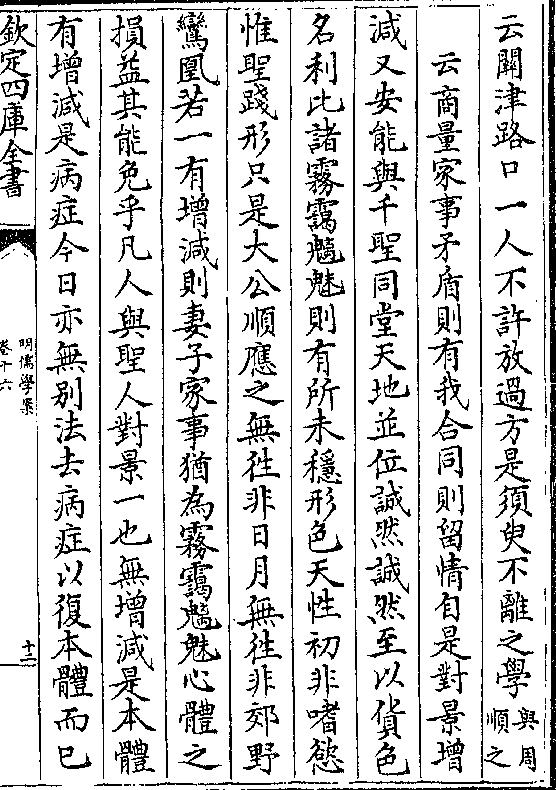 云關津路口一人不許放過方是須臾不離之學與周
順之
云商量家事矛盾則有我合同則留情自是對景增
減又安能與千聖同堂天地並位誠然誠然至以貨色
名利比諸霧靄魑魅則有所未穩形色天性初非嗜慾
惟聖踐形只是大公順應之無往非日月無往非郊野
鸞凰若一有增減則妻子家事猶為霧靄魑魅心體之
損益其能免乎凡人與聖人對景一也無增減是本體
有增減是病症今日亦無别法去病症以復本體而已
欽定四庫全書
明儒學案
卷十六
十二